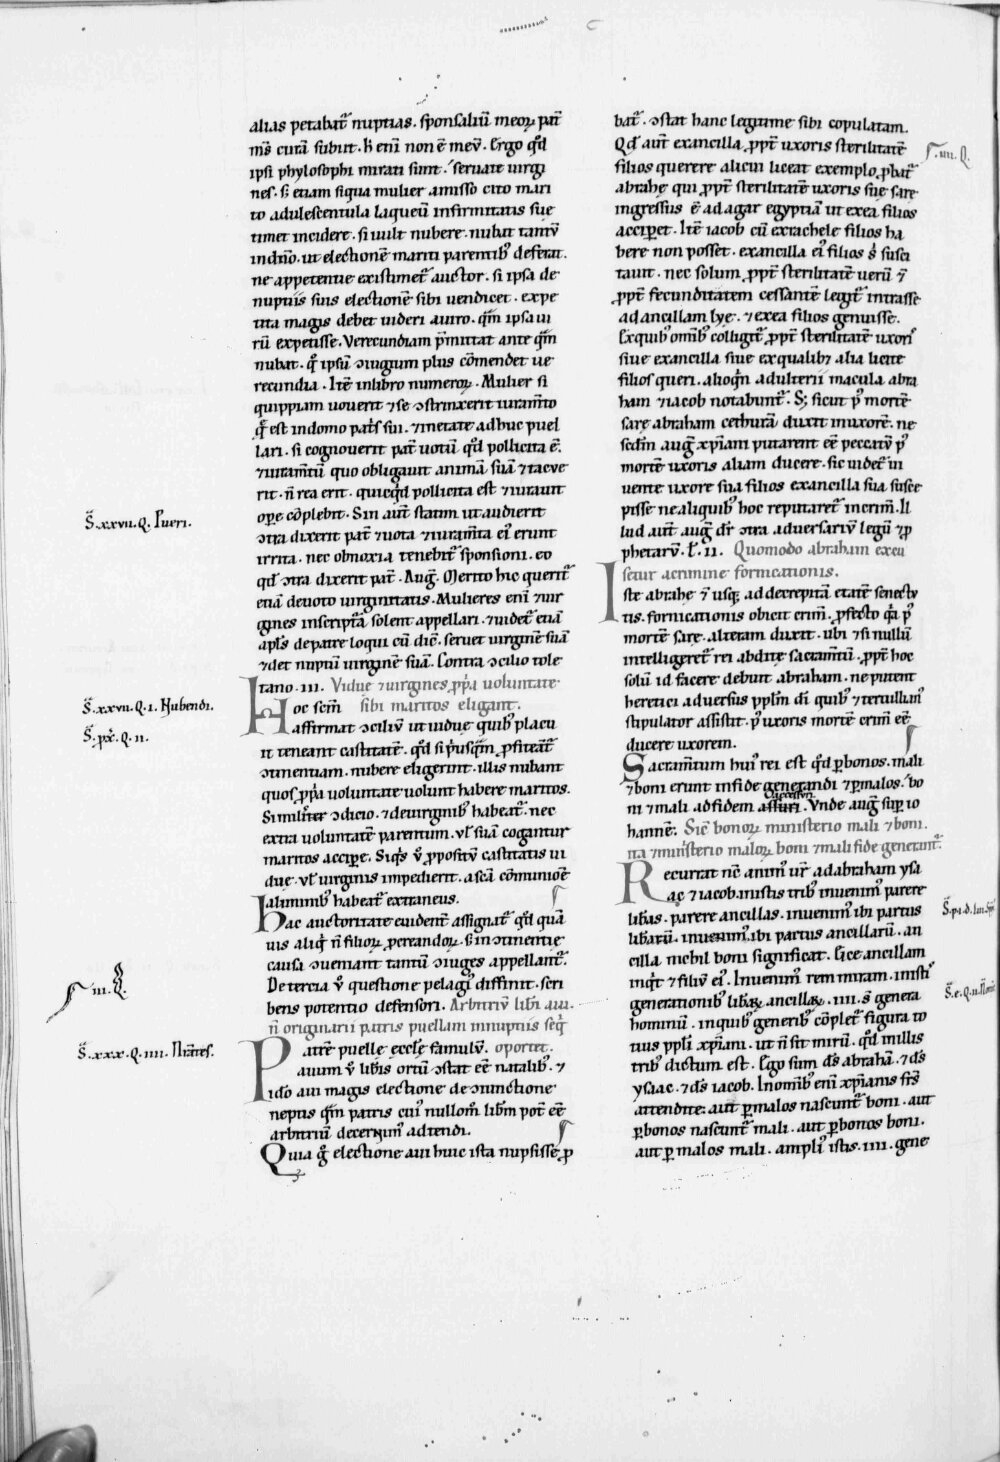 alias petabat᷑ nuptias. sponsaliū meoꝝ pat᷑
mꝰ curā subiit. h̄ eni non ē meū. Ergo qd̄
ipsi phylosophi mirati sunt. seruate uirgi
nes. s; etiam siqua mulier amisso cito mari
to adulescentula laqueū infirmitatis sue
timet incidere. si uult nubere. nubat tantū
indn̄o. ut electionē mariti parentibꝰ deferat.
ne appetentie existimet᷑ auctor. si ipsa de
nuptiis suis electionē sibi uendicet. expe
tita magis debet uideri auiro. qm̄ ipsa ui
rū expetisse. Verecundiam p̄mittat ante qm̄
nubat. qͦ ipsū ↄiugium plus cōmendet ue
recundia. Itē inlibro numeroꝝ. Mulier si
quippiam uouerit ⁊se ↄstrinxerit iuram̄to
q̄ est indomo pat᷑s sui. ⁊inetate adhuc puel
lari. si cognouerit pat᷑ uotū qd̄ pollicita ē.
⁊iuram̄tū quo obligauit animā suā ⁊tacue
rit. n̄ rea erit. quicqd̄ pollicita est ⁊iurauit
oꝑe cōplebit. Sin aut̄ statim ut audierit
ↄtra dixerit pat᷑ ⁊uota ⁊iuram̄ta eiꝰ erunt
irrita. nec obnoxia tenebit᷑ sponsioni. eo
qd̄ ↄtra dixerit pat᷑. Auḡ. Merito hic querit᷑
etiā deuoto uirginitatis. Mulieres eni ⁊uir
gines inscriptᷓa solent appellari. ⁊uidet᷑ etiā
apl̄s depatre loqui cū dic̄. seruet uirginē suā
⁊det nuptū uirginē suā. Contra ↄcilio tole
tano .III. Vidue ⁊uirgines ꝓpͥa uoluntate
Hoc sc̄m sibi maritos eligant.
affirmat ↄciliū ut uidue quibꝰ placu
it teneant castitatē. qd̄ si pͥusqm̄ ꝓfiteāt᷑
ↄtinentiam. nubere eligerint. illis nubant
quos ꝓpͥa uoluntate uolunt habere maritos.
Similit᷑ ↄdicio. ⁊deuirginibꝰ habeat᷑. nec
extra uoluntatē parentum. ul̄ suā cogantur
maritos accipe. Siqͥs ū ꝓpositū castitatis ui
due. ul̄ uirginis impedierit. ascā cōmunione
⁊aliminibꝰ habeat᷑ extraneus.
Hac auctoritate euident᷑ assignat᷑ qd̄ quā
uis aliqͦ n̄ filioꝝ ꝓcreandoꝝ. s; in ↄtinentie
causa ↄueniant tantū ↄiuges appellant᷑.
De tercia ū questione pelagiꝰ diffinit. scri
bens potentio defensori. Arbitriū libi aui.
n̄ originarii patris puellam innuptiis seq̄
Patrē puelle eccle famulū. oportet.
auum ū libis ortū ↄstat eē natalibꝰ. ⁊
id̄o aui magis electione deↄiunctione
neptis qm̄ patris cuiꝰ nullom̄ libm̄ pot̄ eē
arbitriū decernimꝰ adtendi.
Quia g̊ electione aui huic ista nupsisse ꝓ
bat᷑. ↄstat hanc legitime sibi copulatam.
Qd̄ aut̄ exancilla ꝓpt̄ uxoris sterilitatē
filios querere alicui liceat exemplo ꝓbat᷑
abrahe qui ꝓpt̄ sterilitatē uxoris sue sare
ingressus ē ad agar egyptiā ut exea filios
acciperet. Itē iacob cū exrachele filios ha
bere non posset. exancilla eiꝰ filios s̄ susci
tauit. nec solum ꝓpt̄ sterilitatē uerū ⁊
ꝓpt̄ fecunditatem cessantē legit᷑ intrasse
ad ancillam lye. ⁊ exea filios genuisse.
Exquibꝰ om̄ibꝰ colligit᷑ ꝓpt̄ sterilitatē uxorꝭ
siue exancilla siue exqualibꝫ alia licite
filios queri. alioqn̄ adulterii macula abra
ham ⁊iacob notabunt᷑. S; sicut pꝰ mortē
sare abraham cethurā duxit inuxorē. ne
scdm̄ auḡ xp̄iani putarent eē peccatū pꝰ
mortē uxoris aliam ducere. sic uidet᷑ ui
uente uxore sua filios exancilla sua susce
pisse ne aliquibꝰ hoc reputaret᷑ incrim̄. Il
lud aut̄ auḡ dr̄ ↄtra aduersariū legū ⁊ ꝓ
phetarū .l᷑. II. Quomodo abraham excu
setur acrimine fornicationis.
Iste abrahe ⁊ usqꝫ ad decrepitā etatē senectu
tis. fornicationis obicit crim̄. ꝓfecto qͥ pꝰ
mortē sare. alteram duxit. ubi ⁊si nullū
intelligeret᷑ rei abdite sacram̄tū. ꝓpt̄ hoc
solū id facere debuit abraham. ne putent
heretici aduersus ppl̄m di quibꝰ ⁊tertullianꝰ
stipulator assistit. pꝰ uxoris mortē crim̄ eē
ducere uxorem.
Sacram̄tum huiꝰ rei est qd̄ ꝑbonos. mali
⁊boni erunt infide generandi ⁊ꝑmalos. bo
ni ⁊mali adfidem assuri. Vnde auḡ suꝑ io
hannē. Sic̄ bonoꝝ ministerio mali ⁊boni.
ita ⁊ministerio maloꝝ boni ⁊mali fide generant᷑.
Recurrat nc̄ animꝰ ur̄ adabraham ysa
ac ⁊iacob. inistis tribꝰ inuenimꝰ parere
libas. parere ancillas. inuenimꝰ ibi partus
libarū. inuenimꝰ ibi partus ancillarū. an
cilla nichil boni significat. Eice ancillam
inqͥt ⁊ filiū eiꝰ. Inuenimꝰ rem miram. inisti
generationibꝰ libaꝝ ancillaꝝ. IIII. s̄ genera
hominū. inquibꝰ generibꝰ cōplet᷑ figura to
tius ppl̄i xp̄iani. ut n̄ sit mirū. qd̄ inillis
tribꝰ dictum est. Ego sum ds̄ abrahā. ⁊ ds̄
ysaac. ⁊ ds̄ iacob. Inom̄ibꝰ eni xp̄ianis frs̄
attendite. aut ꝑmalos nascunt᷑ boni. aut
ꝑbonos nascunt᷑ mali. aut ꝑbonos boni.
aut ꝑ malos mali. ampliꝰ istis .IIII. gene
S̄. xxvii. Q. Pueri.
S̄. xxvii. Q. I. Nubendi.
III. Q.
IIII. Q.